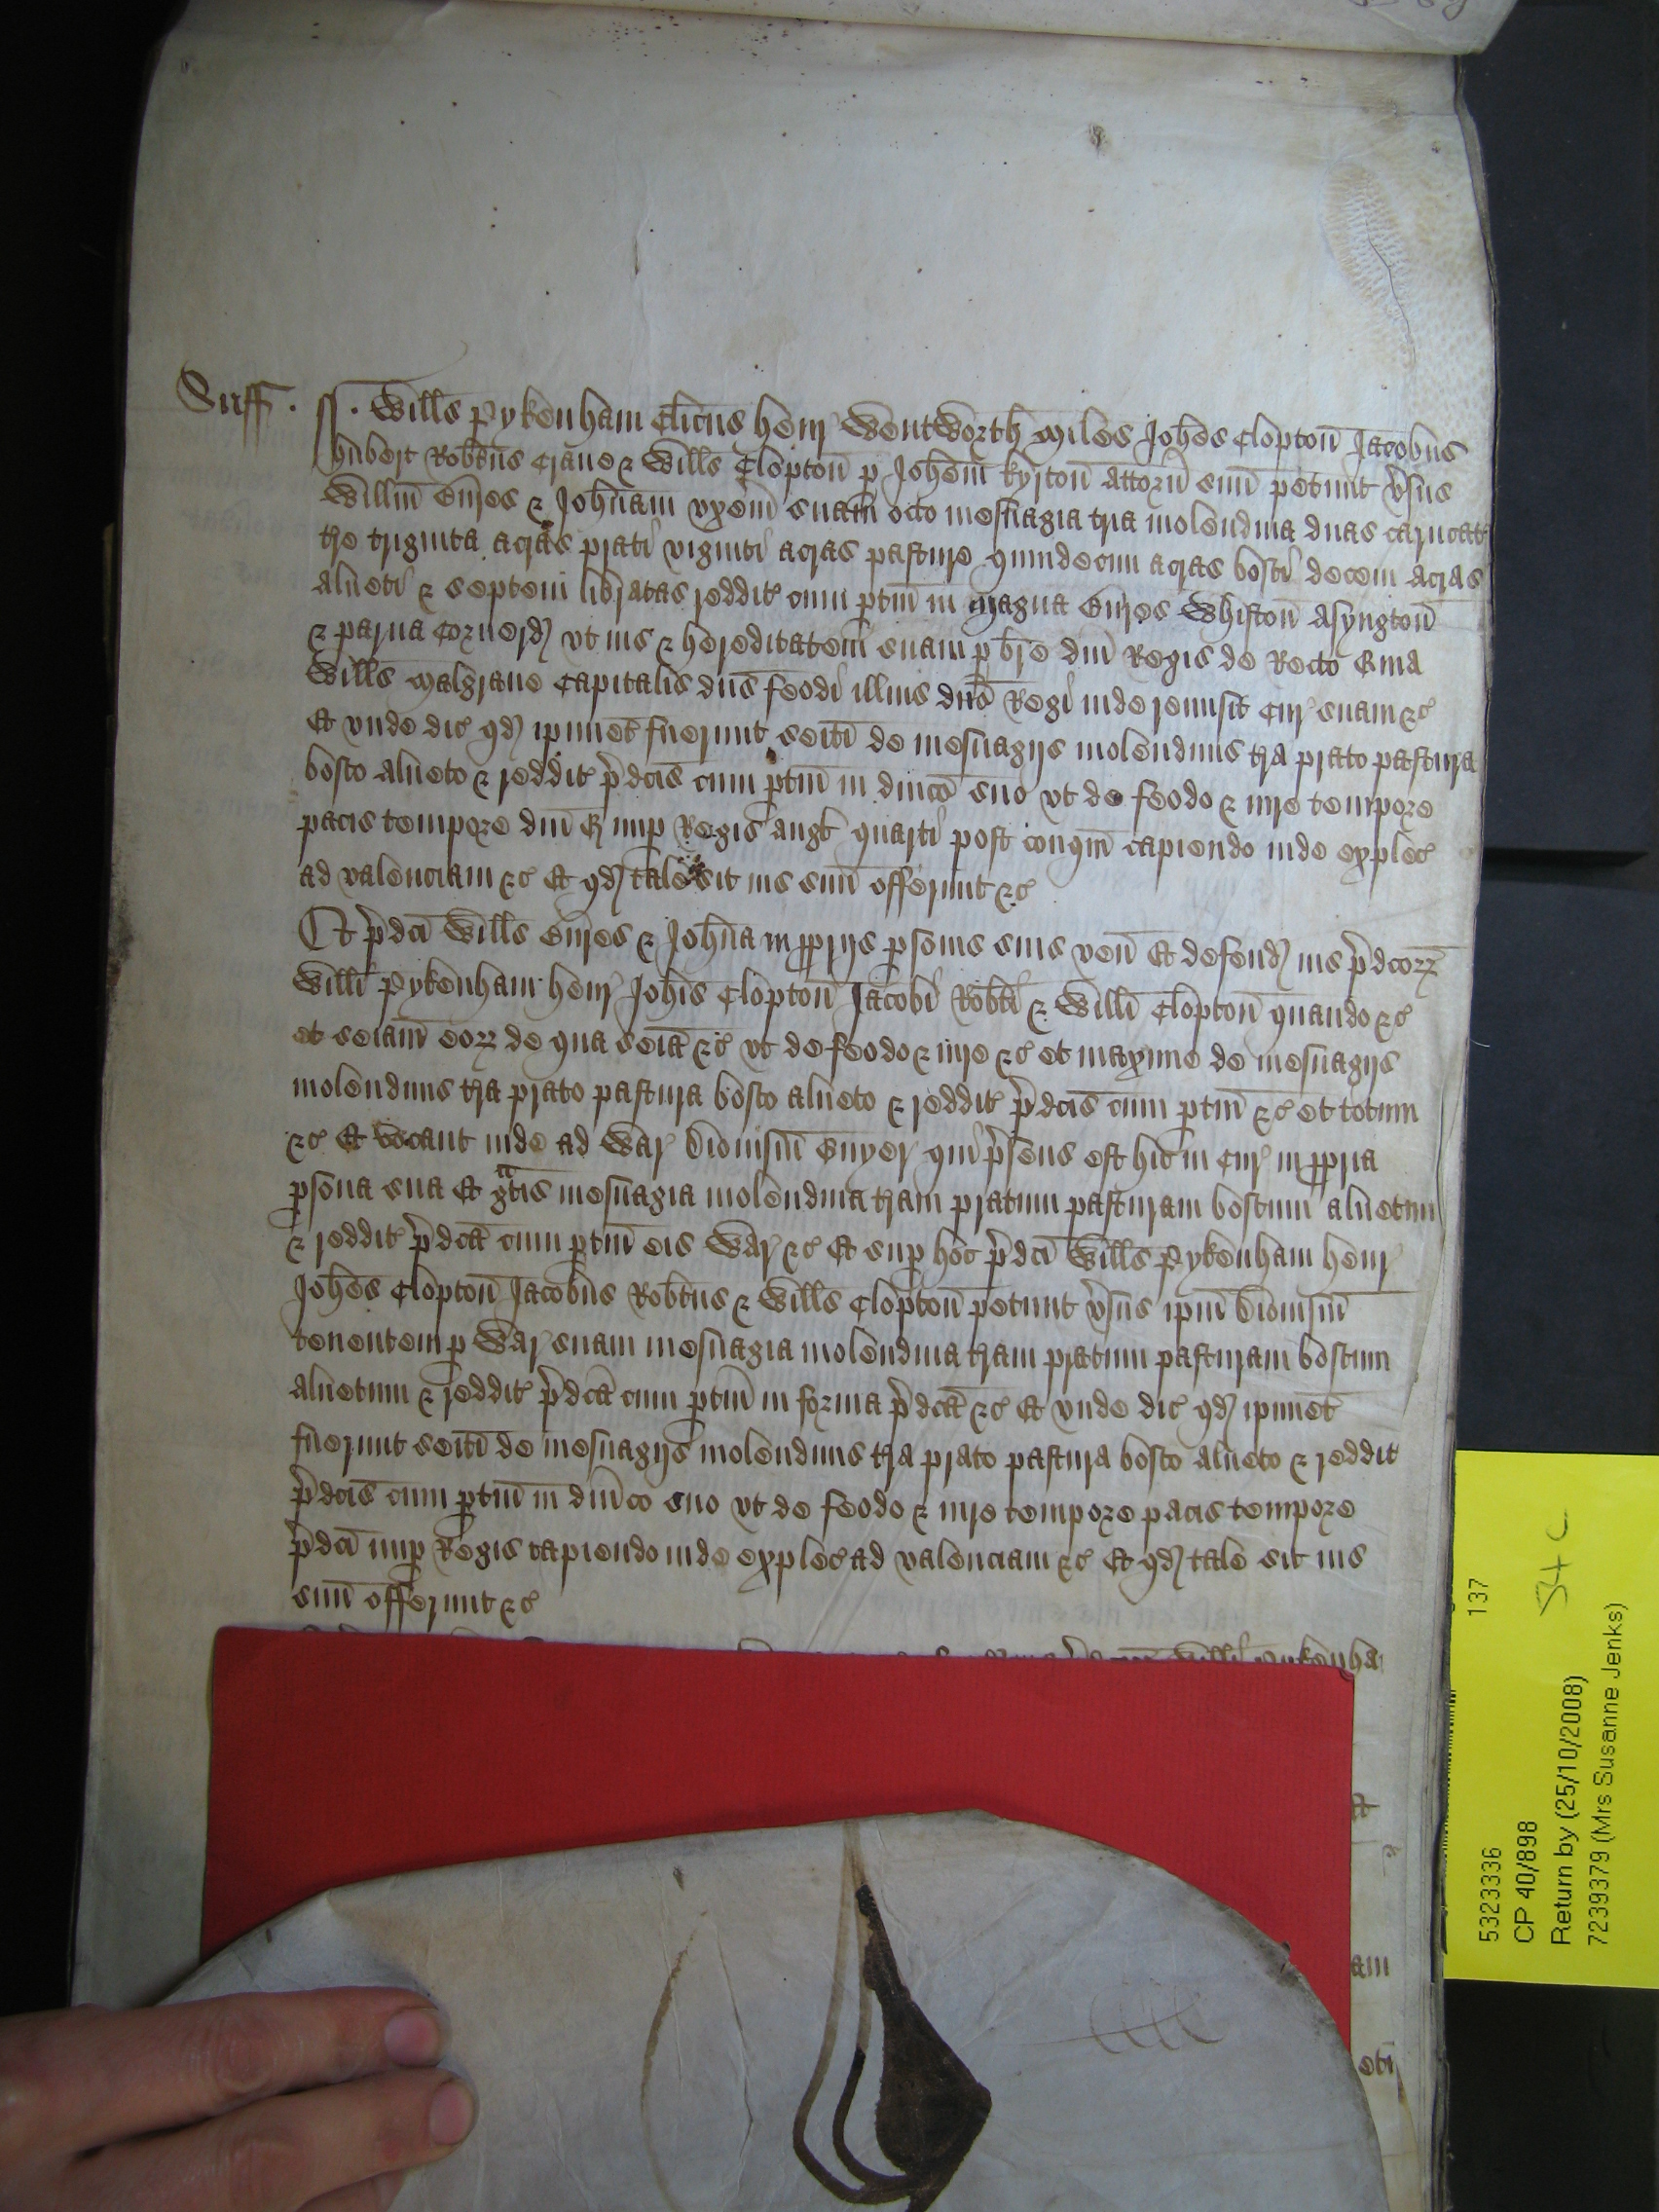 Suff . ss . Wills Pykenham Clicus Henr Wentworth Miles Johes Clopton Jacobus
Hubert Robtus Crane & Wills Clopton p Johem Kyrton Attorn suu petunt vsus
Willm Bures & Johnam vxem suam octo mesuagia tria molendina duas carucat
tre triginta acras prati viginti acras pasture quindecim acras bosci decem acras
alneti & septem libratas reddit cum ptin in Magna Bures Whiston Asyngton
& parua Cornerd vt ius & hereditatem suam p bre dni Regis de Recto Quia
Wills Malgraue Capitalis dns feodi illius dno Regi inde remisit Cur suam &c
Et vnde dic qd ipimet fuerunt seiti de mesuagijs molendinis tra prato pastura
bosco alneto & reddit pdcis cum ptin in dnico suo vt de feodo & iure tempore
pacis tempore dni E nup Regis Angl quarti post conqm capiendo inde explec
ad valenciam &c Et qd tale sit ius suu offerunt &c
Et pdci Wills Bures & Johna in pprijs psonis suis ven Et defend ius pdcorz
Willi Pykenham Henr Johis Clopton Jacobi Robti & Willi Clopton quando &c
et seiam eorz de qua seia &c vt de feodo & iure &c et maxime de mesuagijs
molendinis tra prato pastura bosco alneto & reddit pdcis cum ptin &c et totum
&c Et vocant inde ad War Dionisiu Gnyer qui psens est hic in Cur in ppria
psona sua Et gatis mesuagia molendina tram pratum pasturam boscum alnetum
& reddit pdca cum ptin eis War &c Et sup hoc pdci Wills Pykenham Henr
Johes Clopton Jacobus Robtus & Wills Clopton petunt vsus ipm Dionisiu
tenentem p War suam mesuagia molendina tram pratum pasturam boscum
alnetum & reddit pdca cum ptin in forma pdca &c Et vnde dic qd ipimet
fuerunt seiti de mesuagijs molendinis tra prato pastura bosco alneto & reddit
pdcis cum ptin in dnico suo vt de feodo & iure tempore pacis tempore
pdci nup Regis capiendo inde explec ad valenciam &c Et qd tale sit ius
suu offerunt &c
Willi Pykenha
am
eti
137
5323336
CP 40/898
Return by (25/10/2008)
7239379 (Mrs Susanne Jenks)